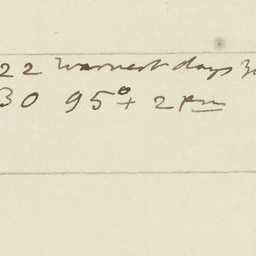 22 warmest days
30 95°+ 2 pm